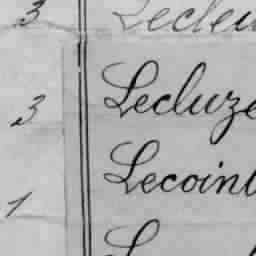 3 Lecleu
3 Lecluze
1 Lecoint